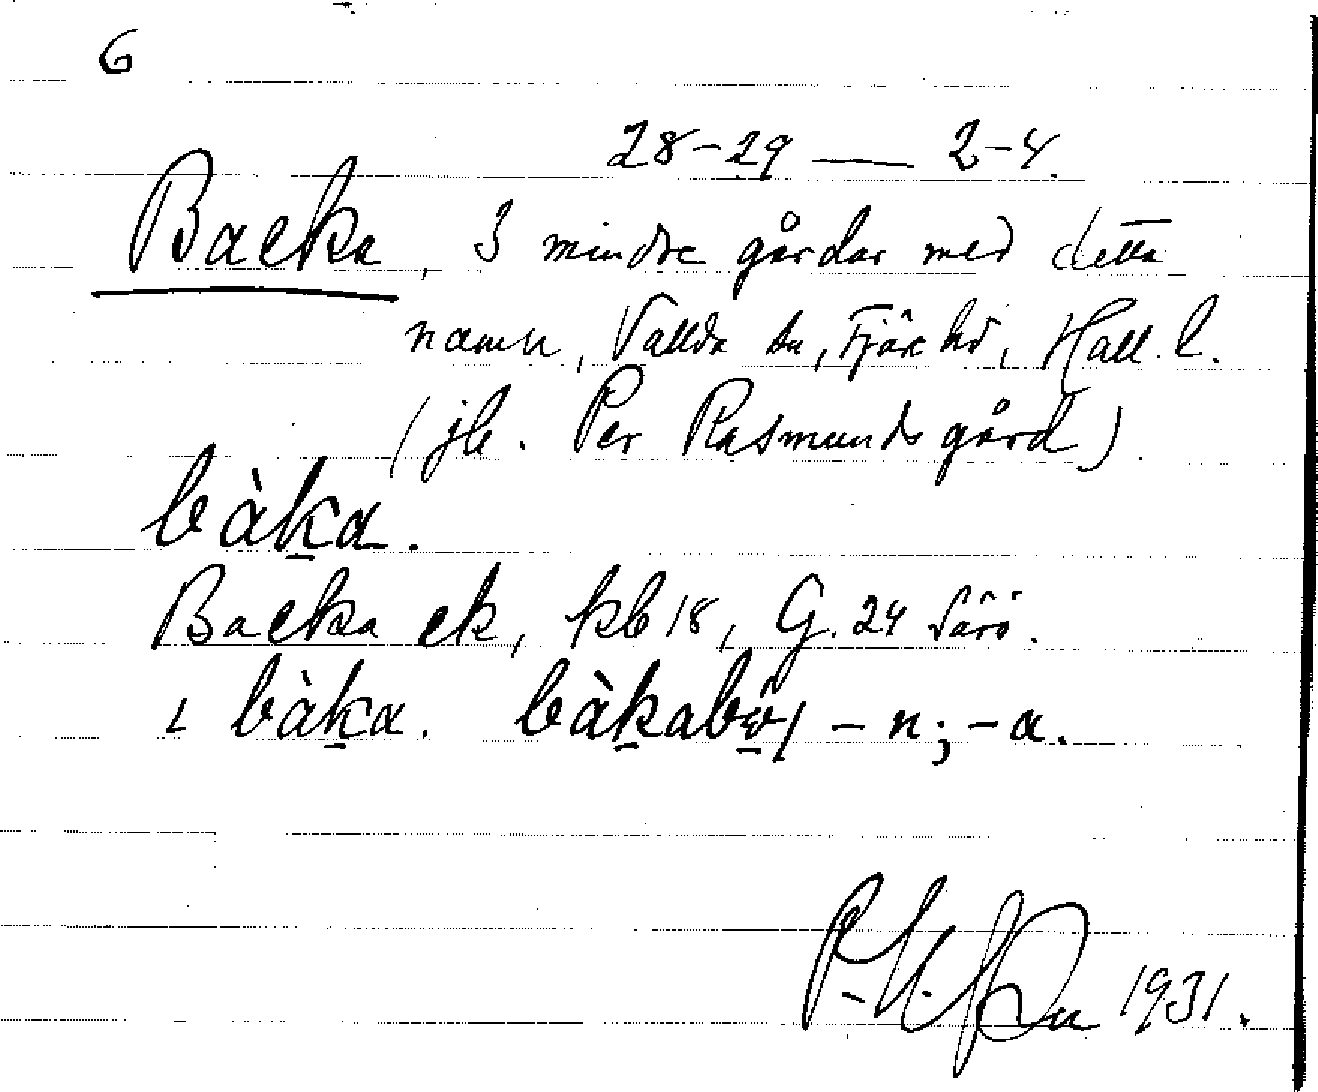 6
28-29 — 2-4.
Backa, 3 mindre gårdar med detta
namn, Vallda sn, Fjäre hd, Hall. l.
(jfr. Per Rasmunds gård).
bàka.
Backa ek, kb 18, G. 24 Särö.
ɩ bàka. bàkabω̂ɩ -n; -a.
1931.